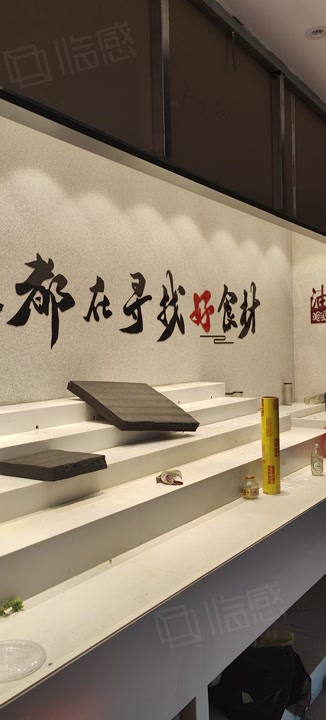 临感
都在寻找好食材
油
临感